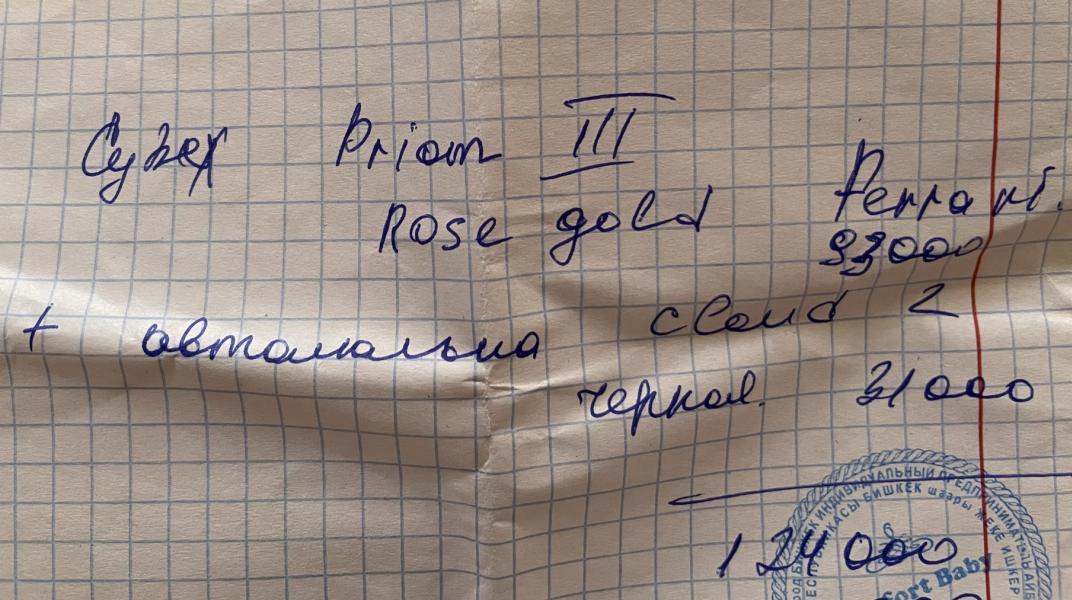 Cybex Priam III
Rose gold Ferrari.
93000
+ автолюлька cloud 2
черная. 31000
124000
ИНДИВИДУАЛЬНЫЙ ПРЕДПРИНИМАТЕЛЬ
БИШКЕК шаары ЖЕКЕ ИШКЕР
fort Baby